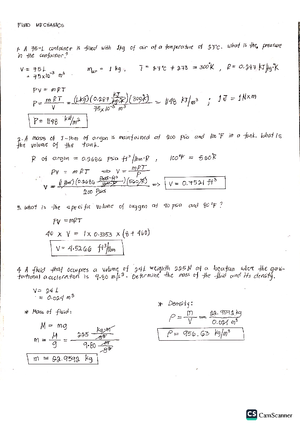 FLUID MECHANICS
1. A 75-L container is filled with 1kg of air at a temperature of 27°C. What is the pressure
in the container?
V = 75L
= 75x10⁻³ m³
T = 27°C + 273 = 300°K
PV = mRT
P = 1148 kJ/m³
2. A mass of 1-lbm of argon is maintained at 200 psia and 100°F in a tank. What is
the volume of the tank.
R of argon = 0.2686 psia ft³/lbm·R
100°F = 560°R
PV = mRT
V = mRT/P
200 psia
V = 0.7521 ft³
3. What is the specific volume of oxygen at 40 psia and 80°F?
PV = mRT
V = 4.5266 ft³/lbm
4. A fluid that occupies a volume of 24L weighs 225N at a location where the gravi-
tational acceleration is 9.80 m/s². Determine the mass of the fluid and its density.
V = 24 L
= 0.024 m³
* Mass of fluid:
m = 22.9592 kg
* Density:
ρ = m/V = 22.9592 kg / 0.024 m³
ρ = 956.63 kg/m³
CS CamScanner